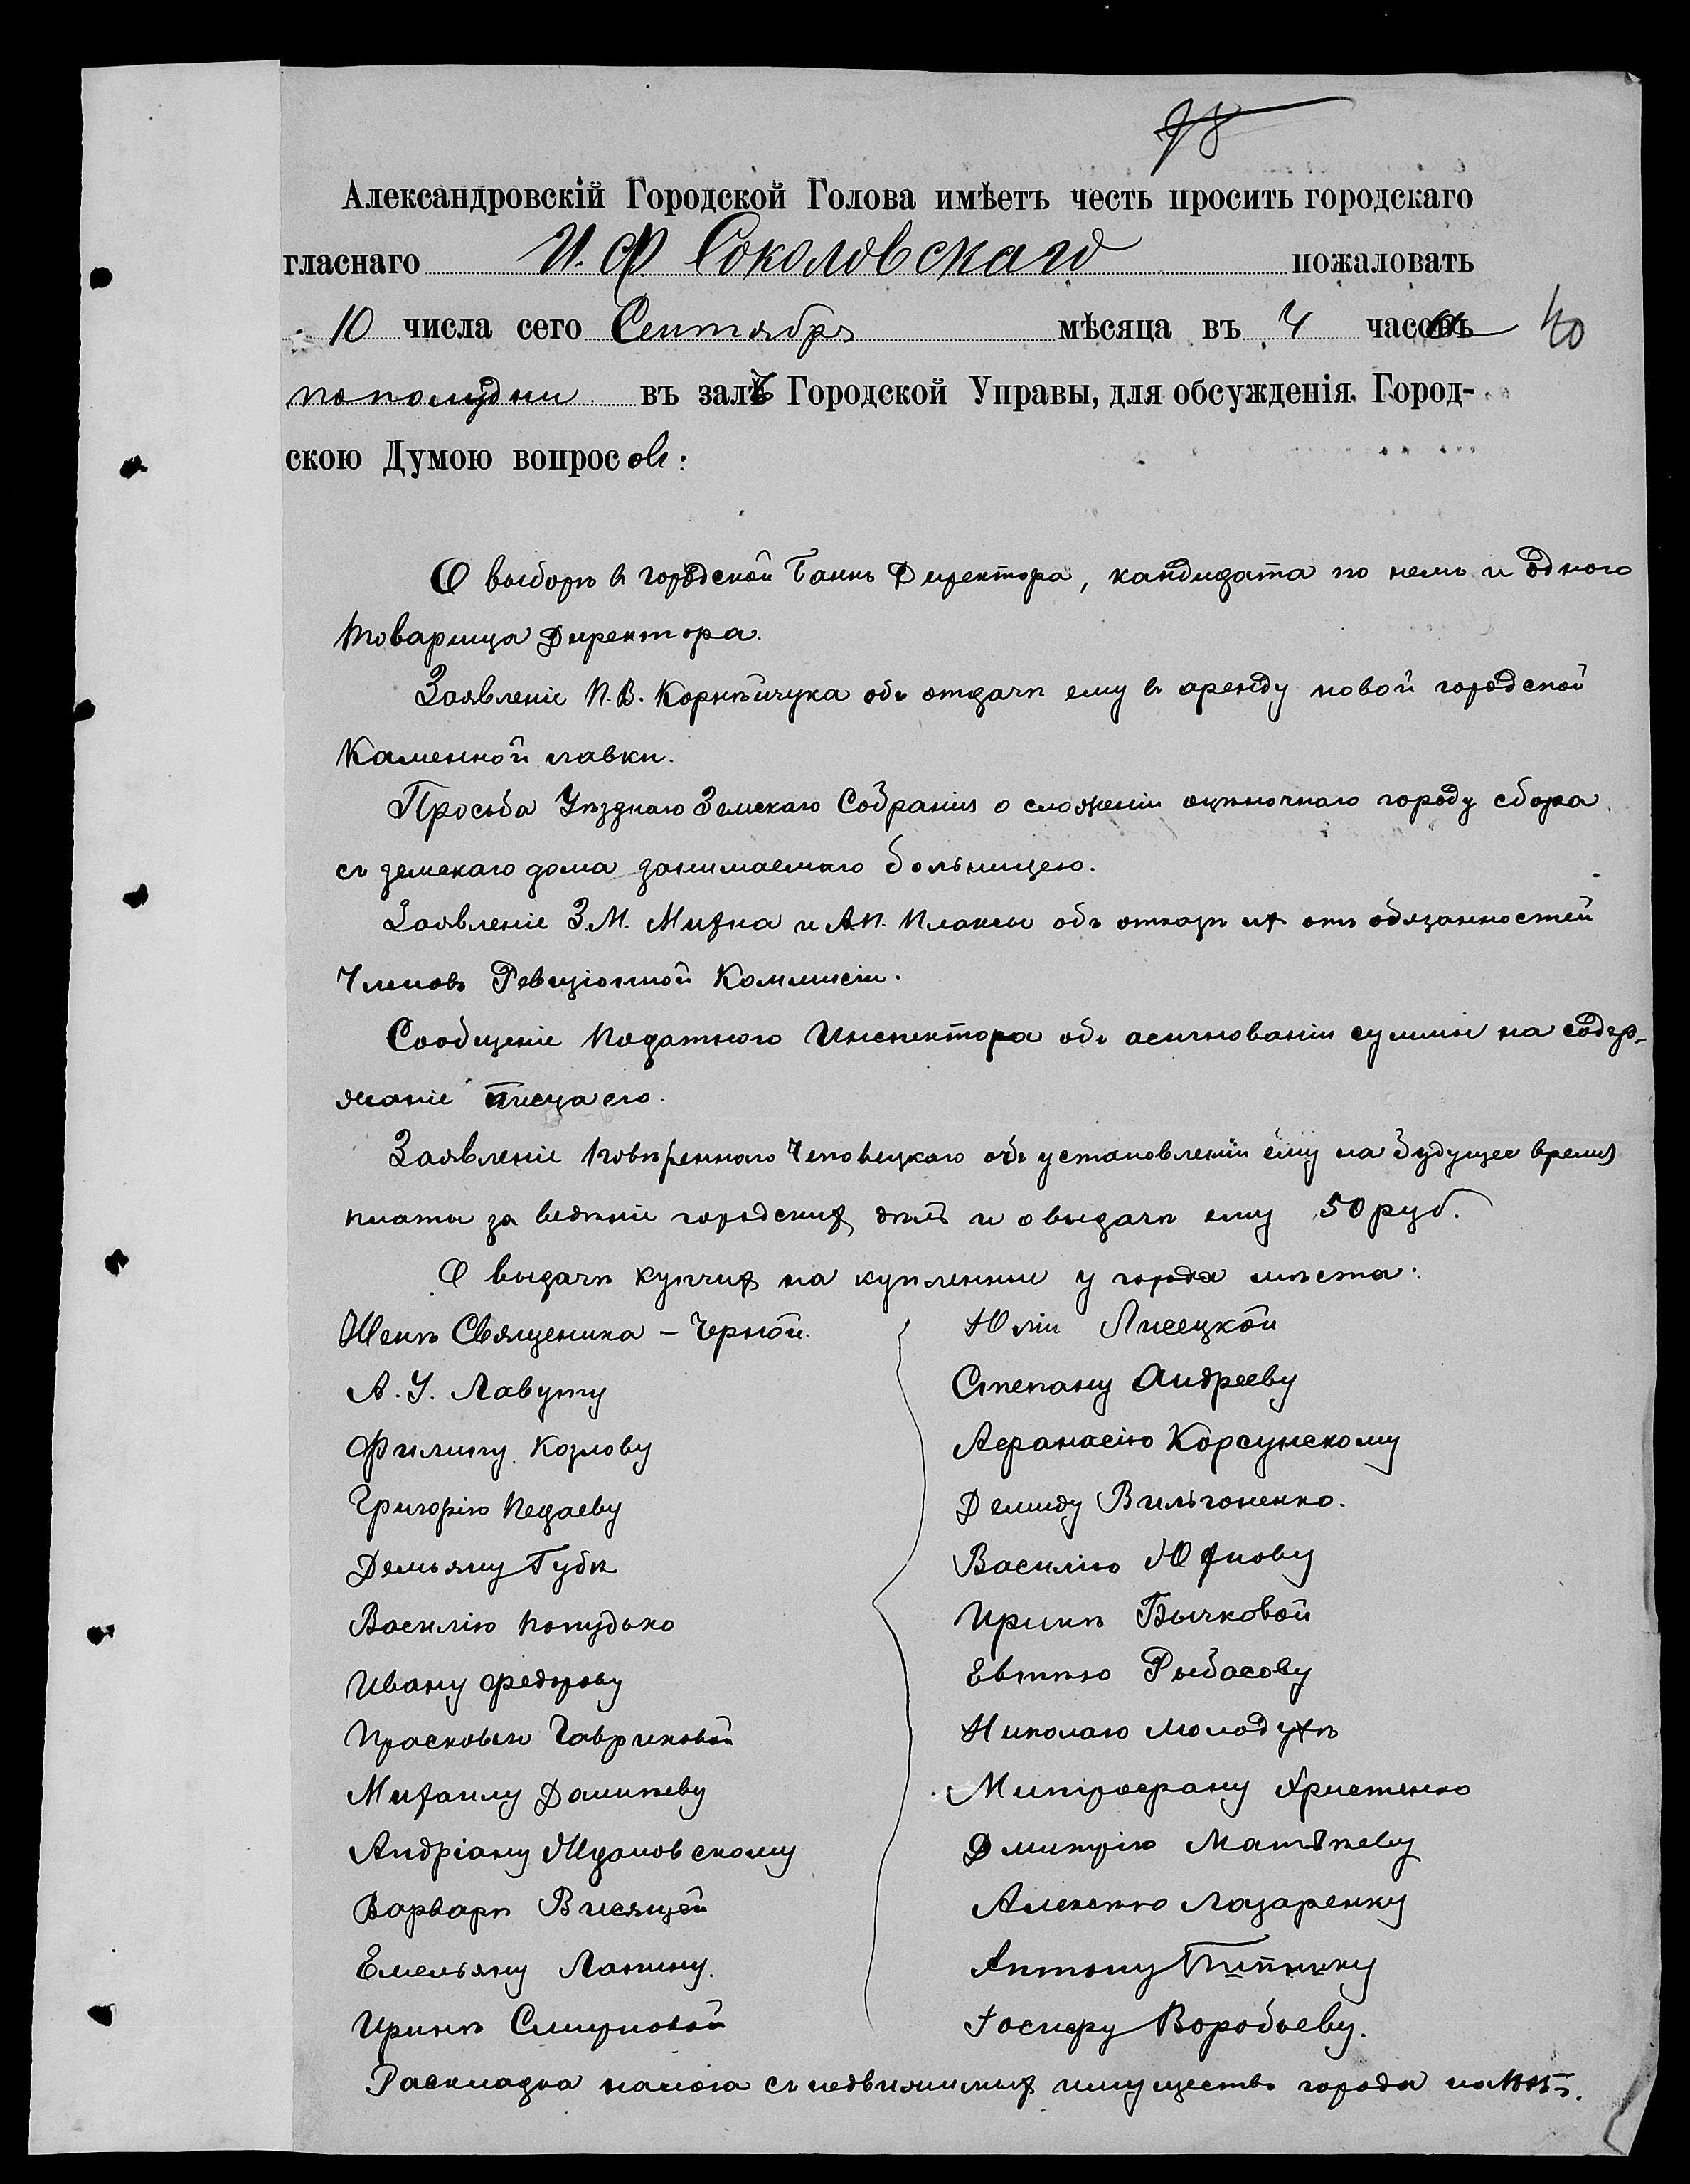 Александровскій Городской Голова имѣетъ честь просить городскаго
гласнаго И. Ф Соколовскаго пожаловать
10 числа сего Сентябрь мѣсяца въ 4 часа 40
пополудни въ залѣ Городской Управы, для обсужденія Город-
скою Думою вопросов:
О выборѣ въ городской Банкъ Директора, кандидата по немъ и одного
товарища Директора.
Заявленіе П. В. Корнѣйчука объ отдачѣ ему въ аренду новой городской
каменной лавки.
Просьба Уѣзднаго Земскаго Собранія о сложеніи оцѣночнаго городу сбора
съ земскаго дома занимаемаго больницею.
Заявленіе З. М. Михна и А. П. Плаксы объ отказѣ их отъ обязанностей
Членовъ Ревизіонной Коммисіи.
Сообщеніе Податного Инспектора объ асигнованіи суммы на содер-
жаніе писца его.
Заявленіе Повѣреннаго Чеповецкаго объ установленіи ему на будущее время
платы за веденіе городских дѣлъ и о выдачѣ ему 50 руб.
О выдачѣ купчих на купленные у города мѣста:
Женѣ Священика – Черной. Юліи Лисецкой
А. У. Лавуту Степану Андрееву
Филипу Козлову Афанасію Корсунскому
Григорію Педаеву Демиду Вильгоненко.
Демьяну Губѣ Василію Юхнову
Василію Попудько Иринѣ Бычковой
Ивану Федорову Евтѣю Рыбасову
Прасковьи Гавриковой Николаю Молодухѣ
Михаилу Данилеву Митрофану Христенко
Андріану Ждановскому Дмитрію Матвѣеву
Варварѣ Висящей Алексѣю Лазаренку
Емельяну Лапину. Антону
Иринѣ Смирновой Іосифу Воробьеву.
Раскладка налога съ недвижимых имуществъ города на